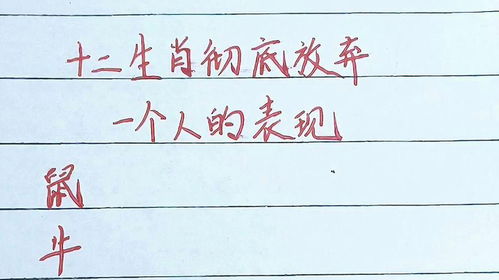 十二生肖彻底放弃
一个人的表现
鼠
牛